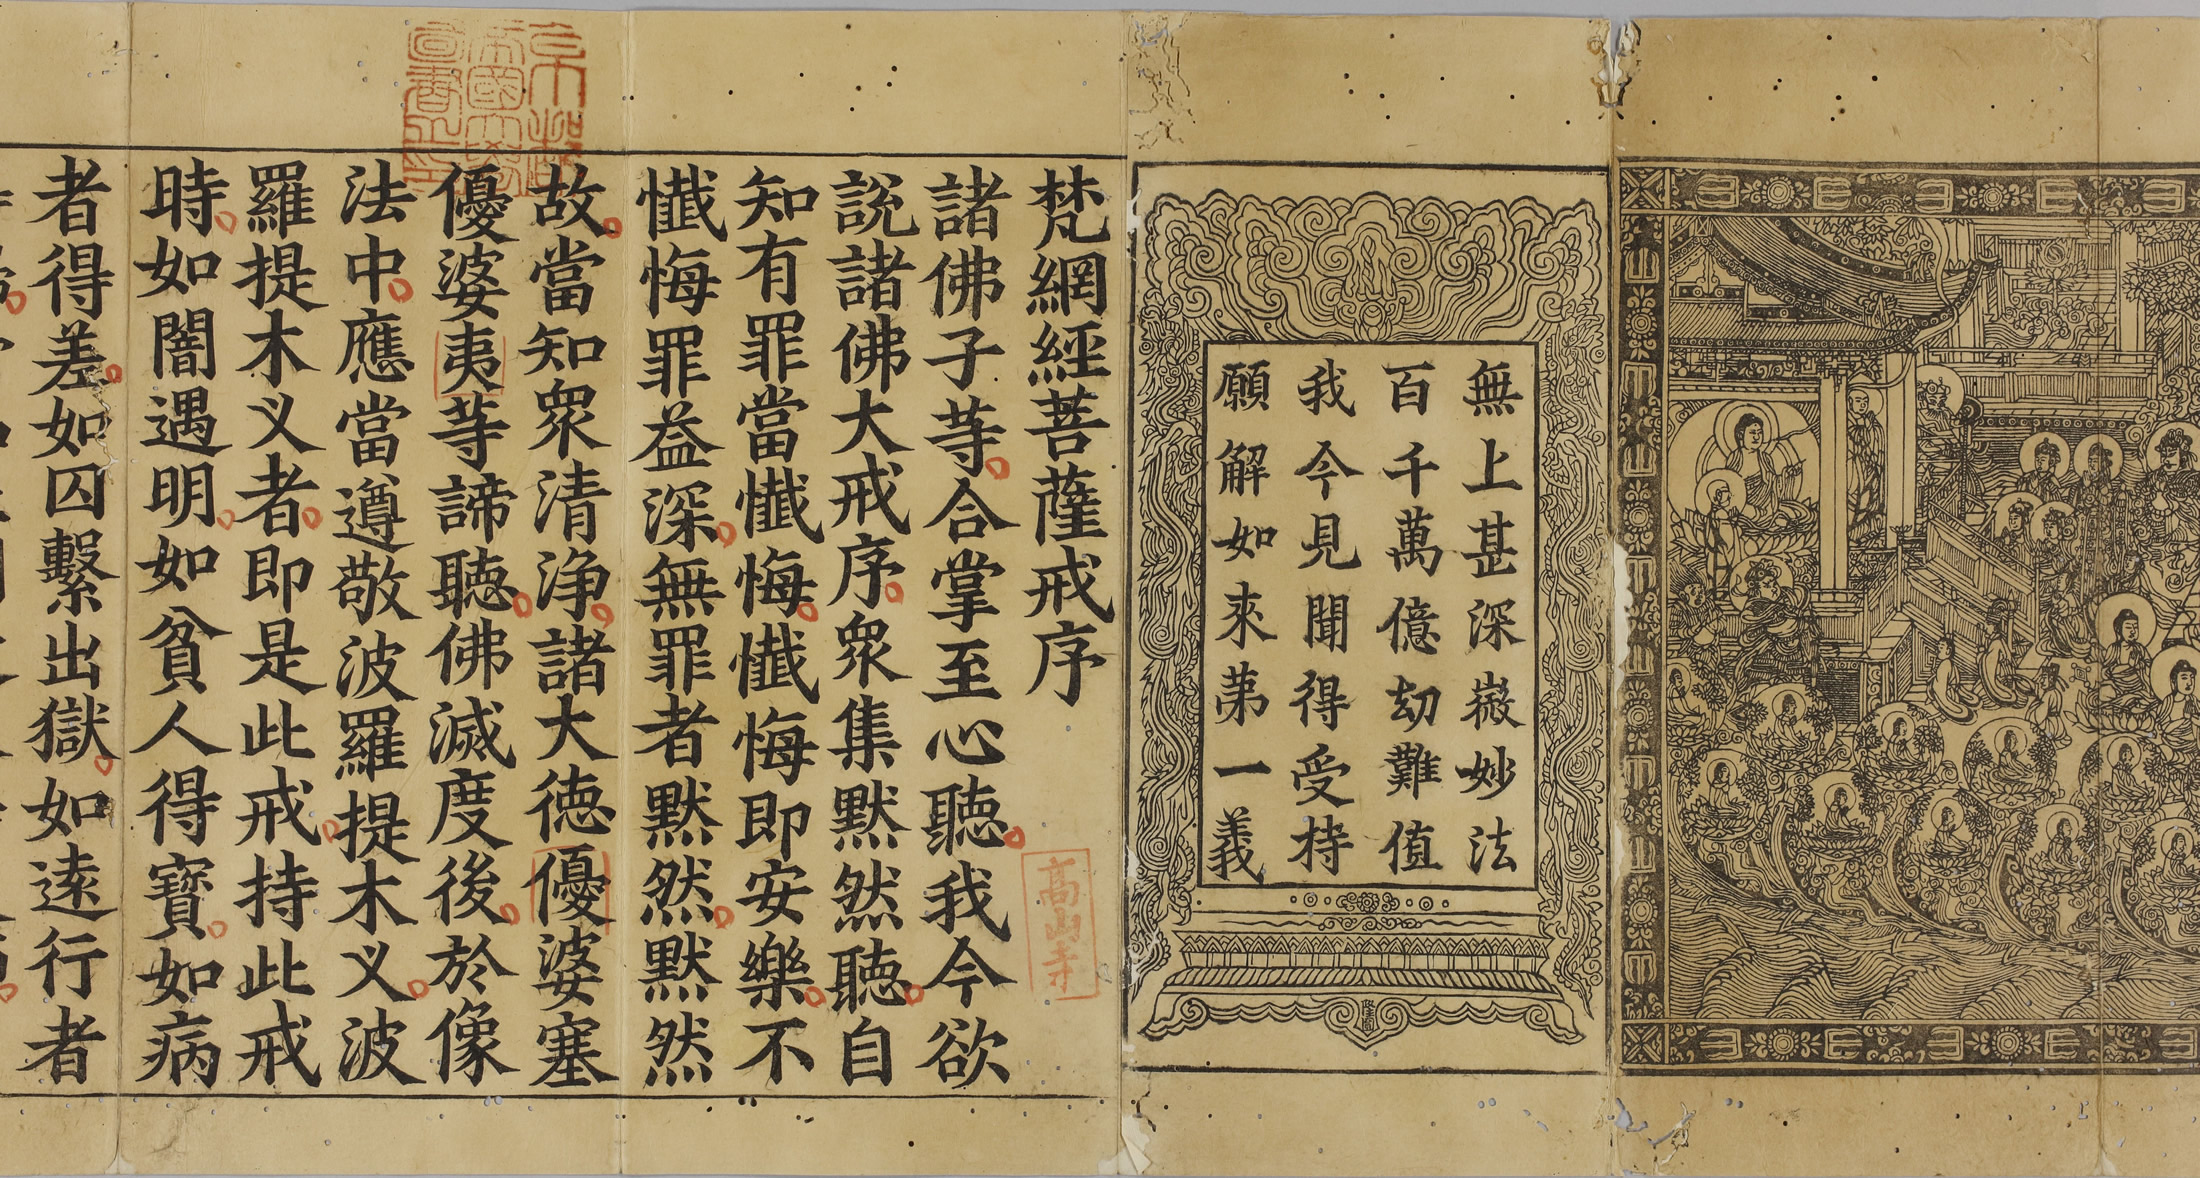 無上甚深微妙法
百千萬億劫難值
我今見聞得受持
願解如來第一義
梵網經菩薩戒序
高山寺
諸佛子等合掌至心聽我今欲
說諸佛大戒序眾集默然聽自
知有罪當懺悔懺悔即安樂不
懺悔罪益深無罪者默然默然
故當知眾清淨諸大德優婆塞
優婆夷等諦聽佛滅度後於像
法中應當遵敬波羅提木义波
羅提木义者即是此戒持此戒
時如闇遇明如貧人得寶如病
者得差如囚繫出獄如遠行者
京都
帝國大學
圖書之印